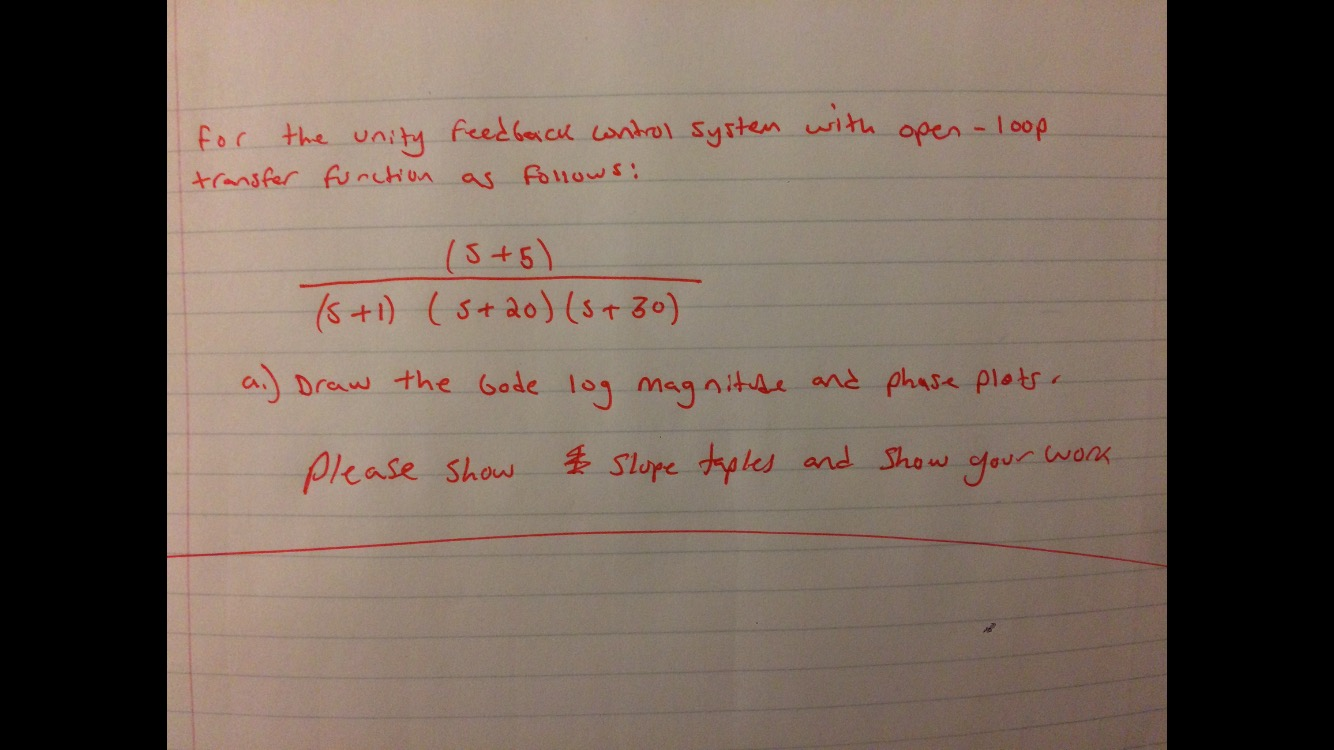 For the unity feedback control system with open-loop
transfer function as follows:
(s+5)
(s+1) (s+20)(s+30)
a.) Draw the bode log magnitude and phase plots.
please show slope taples and show your work